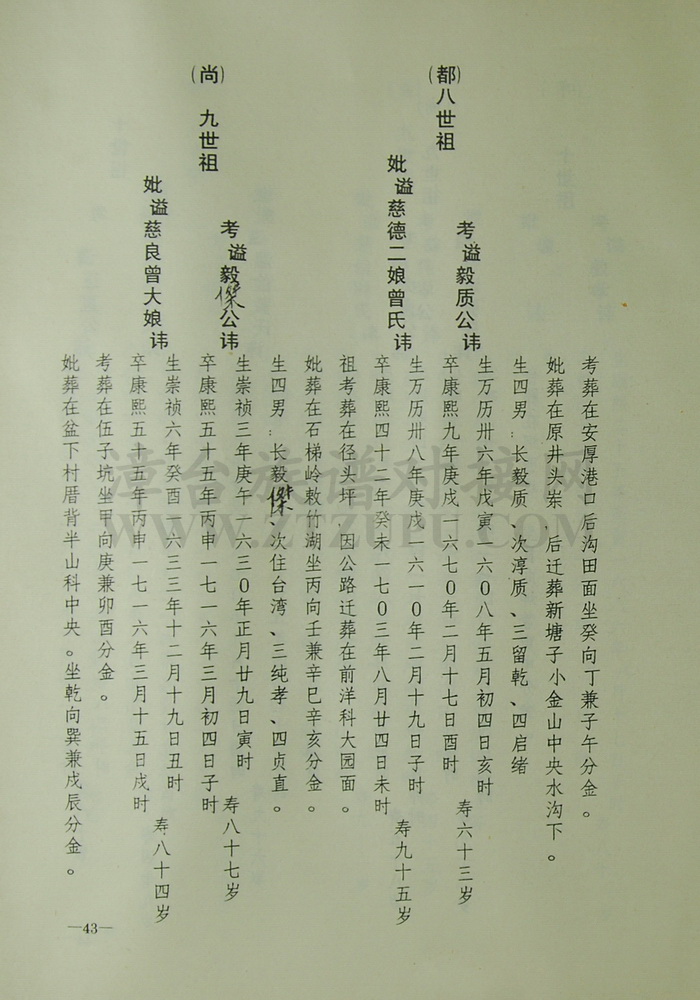 考葬在安厚港口后沟田面坐癸向丁兼子午分金。
妣葬在原井头岽，后迁葬新塘子小金山中央水沟下。
生四男：长毅质、次淳质、三留乾、四启绪
(都)八世祖
考谥毅质公讳
生万历卅六年戊寅一六0八年五月初四日亥时
卒康熙九年庚戌一六七0年二月十七日酉时
寿六十三岁
妣谥慈德二娘曾氏讳
生万历卅八年庚戌一六一0年二月十九日子时
卒康熙四十二年癸未一七0三年八月廿四日未时
寿九十五岁
祖考葬在径头坪，因公路迁葬在前洋科大园面。
妣葬在石梯岭敕竹湖坐丙向壬兼辛巳辛亥分金。
生四男：长毅傑、次住台湾、三纯孝、四贞直。
(尚)九世祖
考谥毅傑公讳
生崇祯三年庚午一六三0年正月廿九日寅时
卒康熙五十五年丙申一七一六年三月初四日子时
寿八十七岁
妣谥慈良曾大娘讳
生崇祯六年癸酉一六三三年十二月十九日丑时
卒康熙五十五年丙申一七一六年三月十五日戌时
寿八十四岁
考葬在伍子坑坐甲向庚兼卯酉分金。
妣葬在盆下村厝背半山科中央。坐乾向巽兼戌辰分金。
—43—